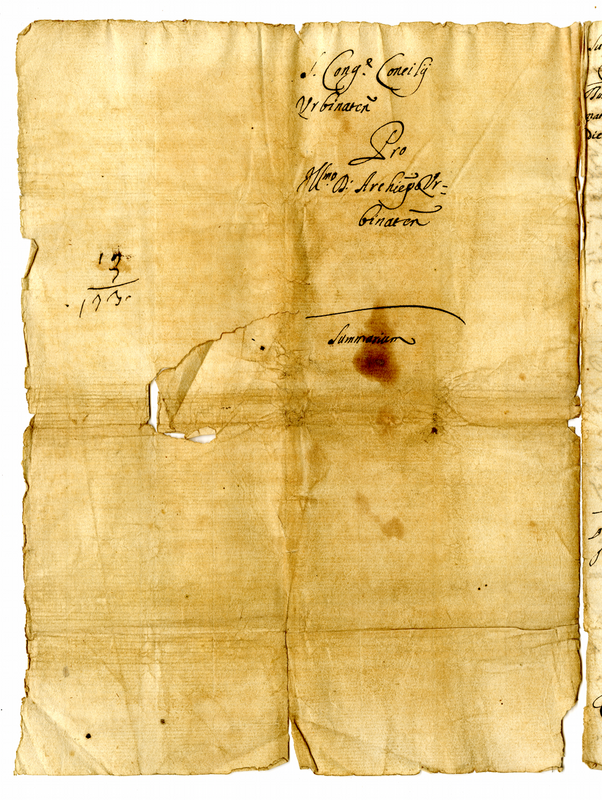 S. Cong.e Concilij
Urbinaten̄
Pro
Ill.mo D. Archiep̄o Ur-
binaten̄
Summarium
17
3
173.